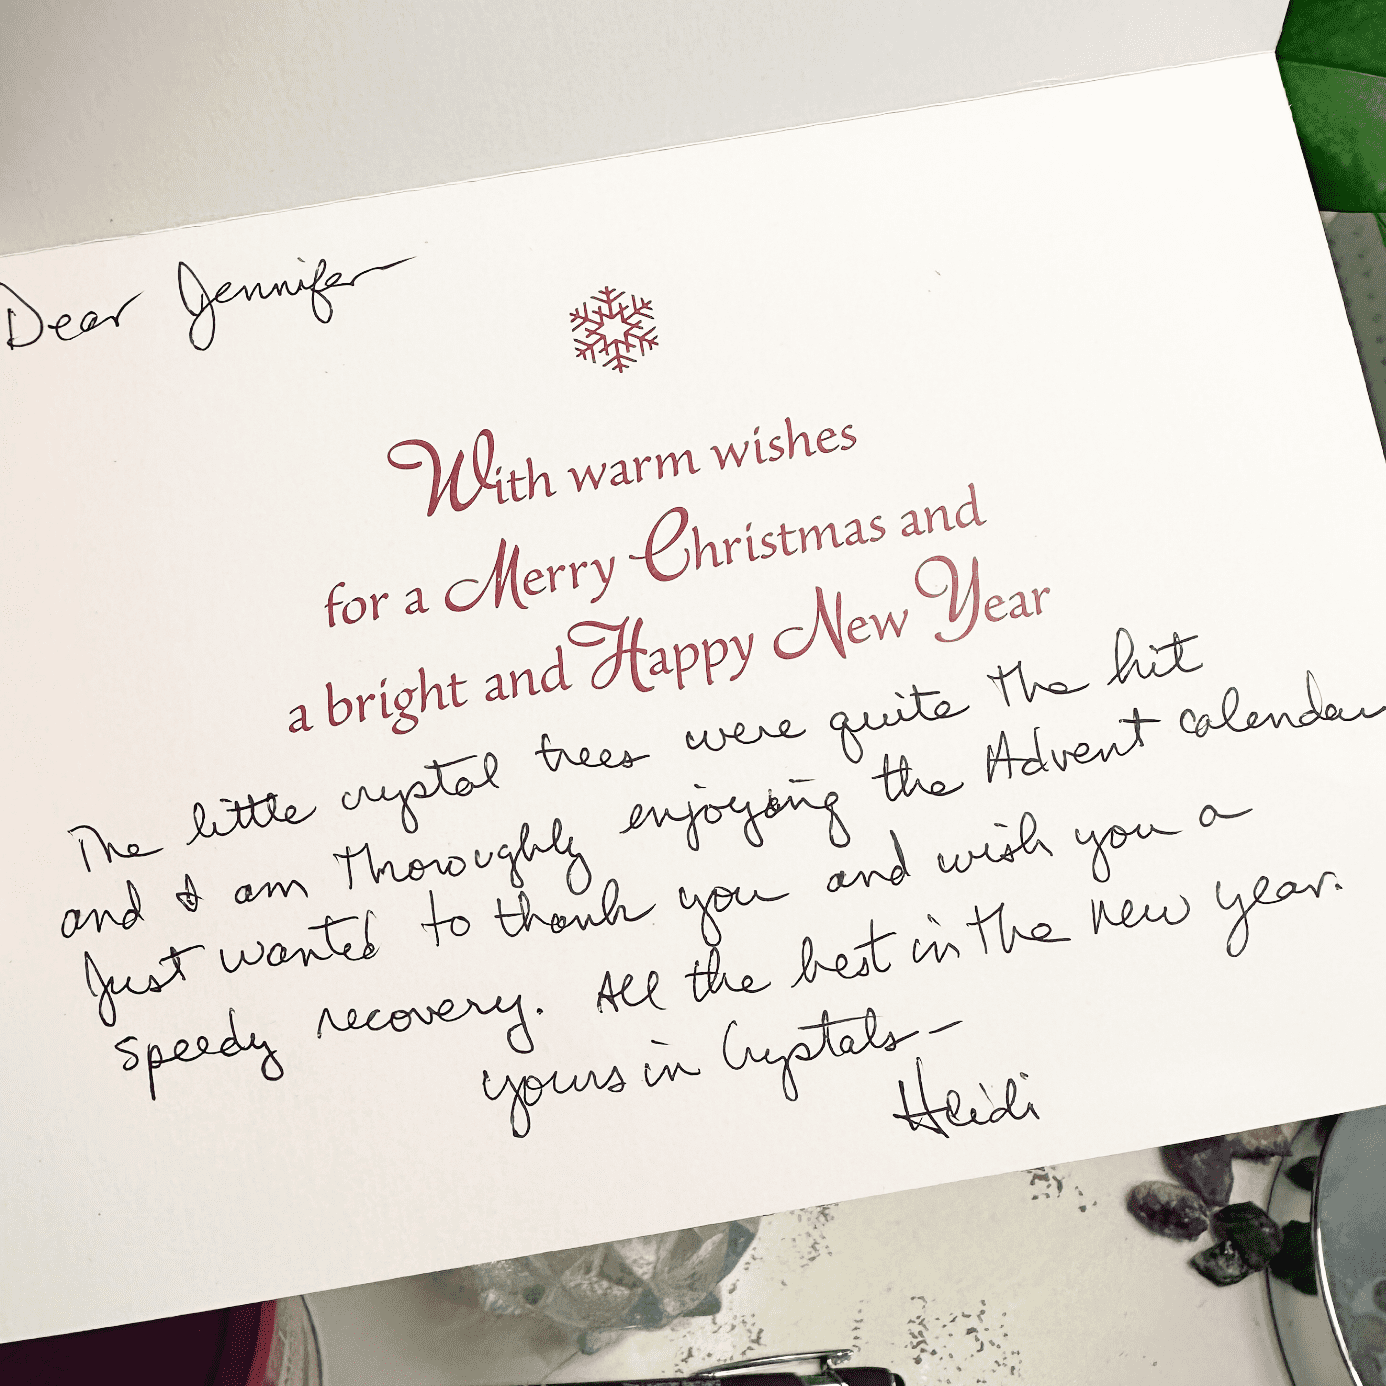 Dear Jennifer
With warm wishes
for a Merry Christmas and
a bright and Happy New Year
The little crystal trees were quite the hit
and I am thoroughly enjoying the Advent calendar
Just wanted to thank you and wish you a
speedy recovery. All the best in the new year.
yours in Crystals–
Heidi